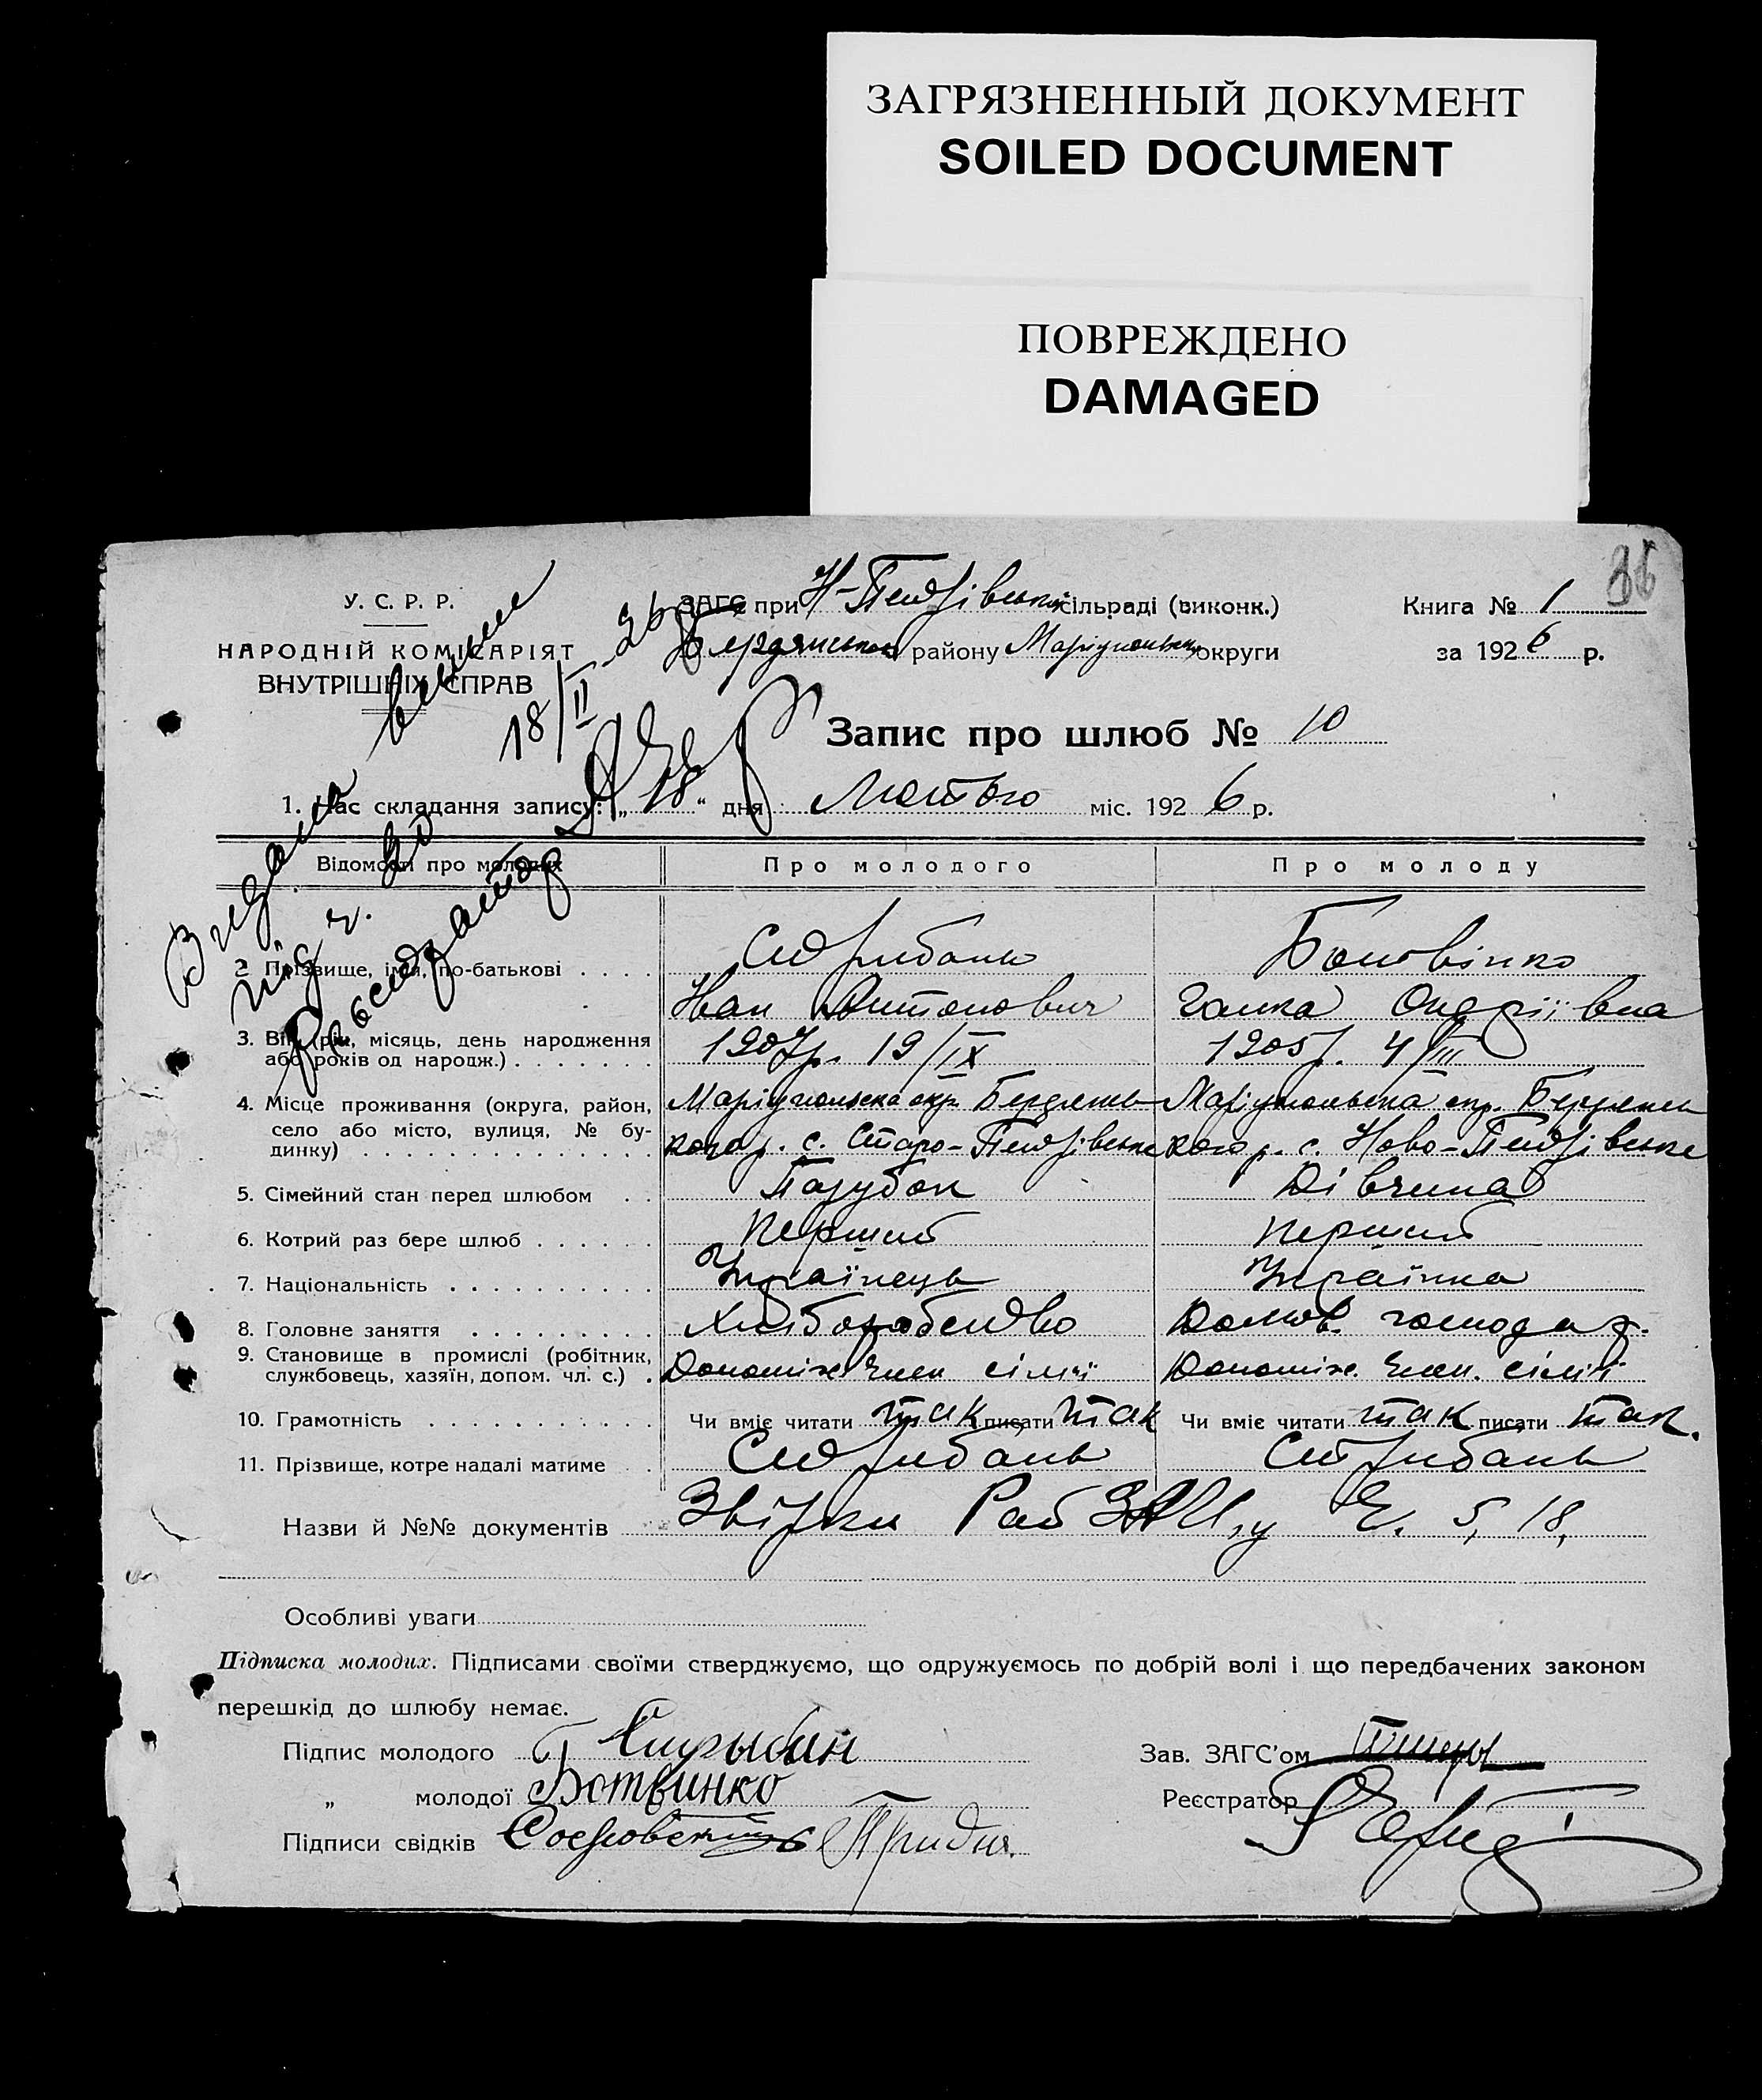 ЗАГРЯЗНЕННЫЙ ДОКУМЕНТ
SOILED DOCUMENT
ПОВРЕЖДЕНО
DAMAGED
36
У. С. Р. Р.
НАРОДНІЙ КОМІСАРІЯТ
ВНУТРІШНІХ СПРАВ
ЗАГС при Н-Петрівській сільраді (виконк.)
Бердянського району Маріупольської округи
Книга № 1
за 1926 р.
Видана виписка
18/II-26
під ч. 20
Реєстратор
Запис про шлюб № 10
1. Час складання запису: „18“ дня Лютого міс. 1926 р.
Відомості про молодих Про молодого Про молоду
2. Прізвище, імя, по-батькові . . . . Стрибань Ботвінко
Іван Антонович Ганна Ондріївна
3. Вік (рік, місяць, день народження
або років од народж.) . . . . . . . 1907р. 19/IX 1905р. 4/III
4. Місце проживання (округа, район, Маріупольска окр. Бердянсь Маріупольска окр. Бердянсь
село або місто, вулиця, № бу-
динку) . . . . . . . . . . . . . . кого р. с. Старо-Петрівське кого р. с. Ново-Петрівське
5. Сімейний стан перед шлюбом . . Парубок Дівчина
6. Котрий раз бере шлюб . . . . . . Перший Перший
7. Національність . . . . . . . . . . Українець Українка
8. Головне заняття . . . . . . . . . Хліборобство Домов. господар.
9. Становище в промислі (робітник,
службовець, хазяїн, допом. чл. с.) . Допоміж член сімї Допоміж. член. сімії
10. Грамотність . . . . . . . . . . . Чи вміє читати так писати так Чи вміє читати так писати так.
11. Прізвище, котре надалі матиме . . Стрибань Стрибань
Назви й №№ документів Звірки Ч. 5, 18,
Особливі уваги
Підписка молодих. Підписами своїми стверджуємо, що одружуємось по добрій волі і що передбачених законом
перешкід до шлюбу немає.
Підпис молодого Стрыбан
Зав. ЗАГС'ом
„ молодої Ботвинко
Реєстратор
Підписи свідків